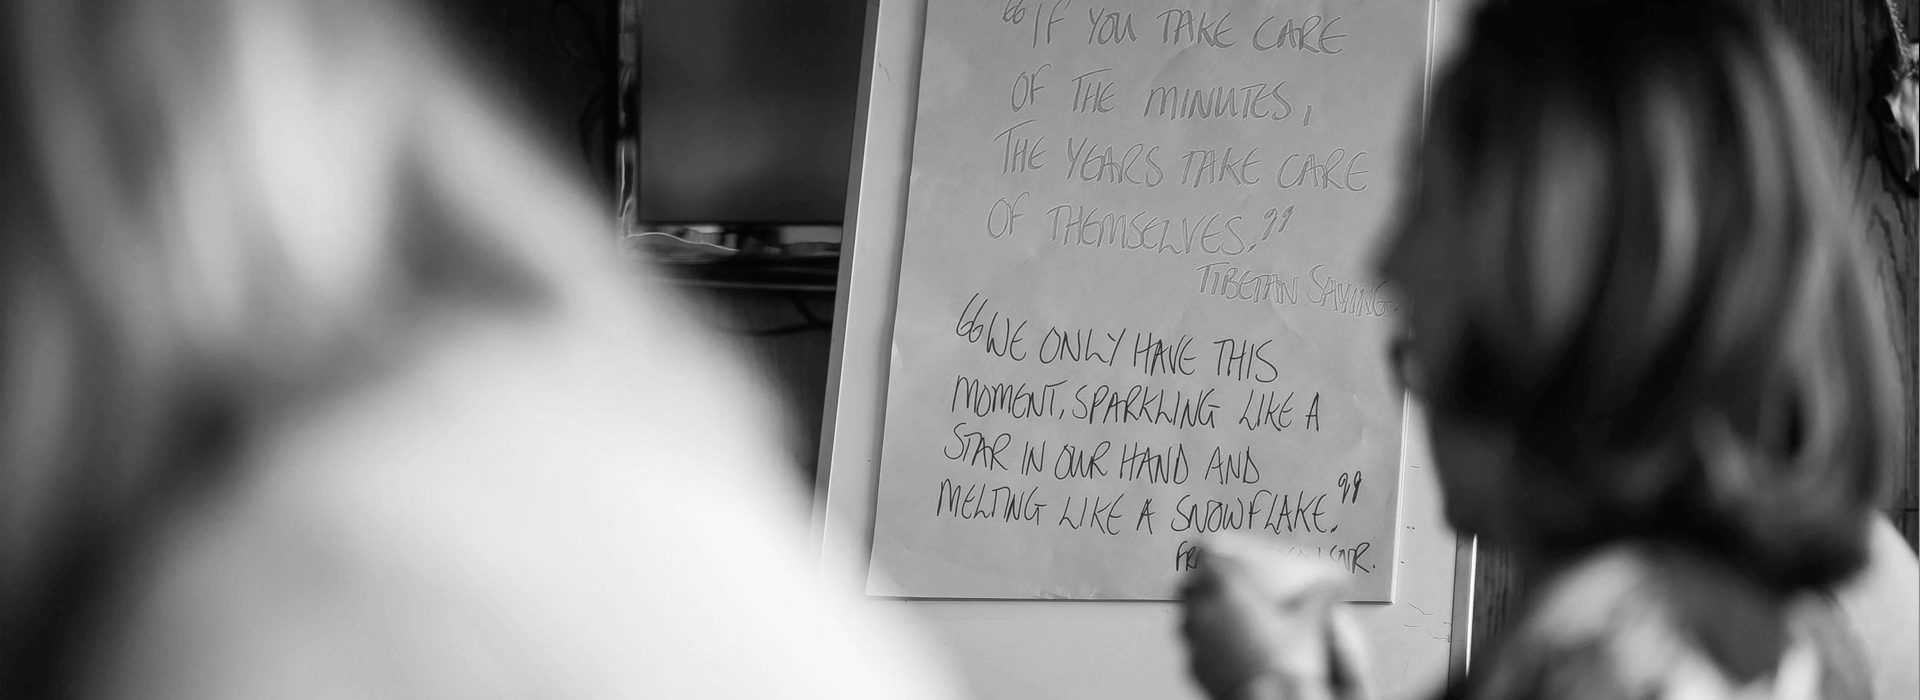 “IF YOU TAKE CARE
OF THE MINUTES,
THE YEARS TAKE CARE
OF THEMSELVES.”
TIBETAN SAYING.
“WE ONLY HAVE THIS
MOMENT, SPARKLING LIKE A
STAR IN OUR HAND AND
MELTING LIKE A SNOWFLAKE.”